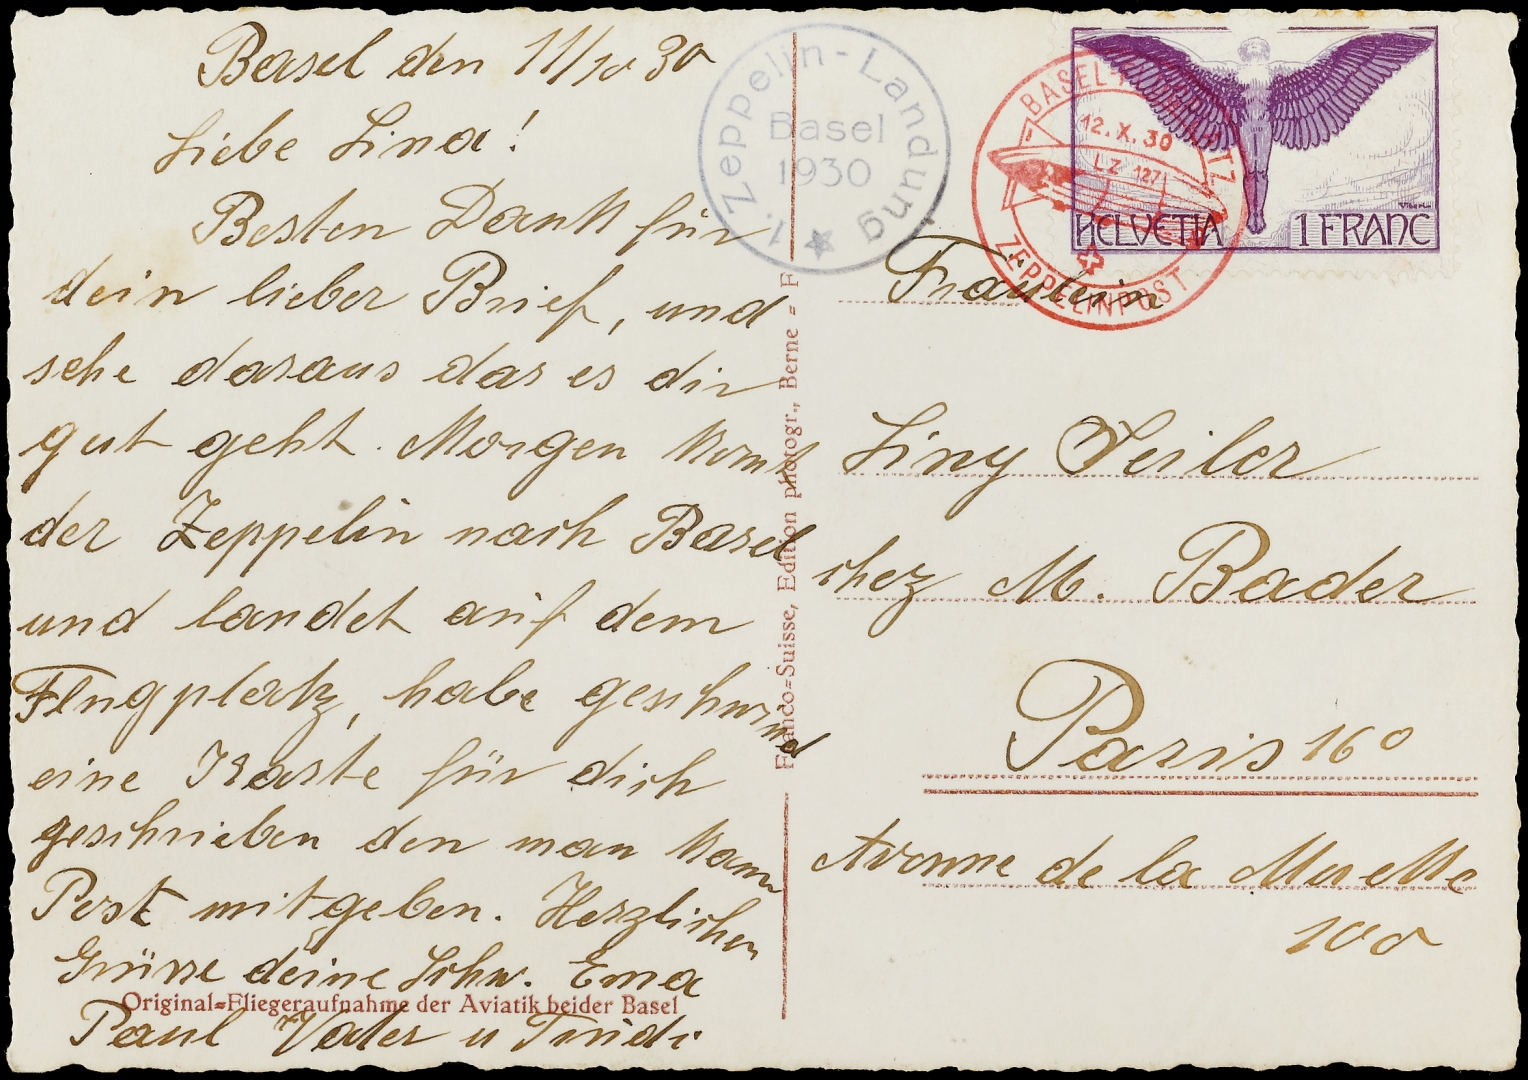 Basel den 11/10 30
Liebe Lina!
Besten Dank für
dein lieber Brief, und
sehe daraus das es dir
gut geht. Morgen komt
der Zeppelin nach Basel
und landet auf dem
Flugplatz, habe geschwind
eine Karte für dich
geschrieben den man kann
Post mitgeben. Herzlichen
Grüsse deine Schw. Ema
Paul Vater u Trudi
Original=Fliegeraufnahme der Aviatik beider Basel
1. Zeppelin-Landung
Basel
1930
Franco=Suisse, Edition photogr., Berne = F
HELVETIA 1 FRANC
12.X.30
LZ 127
ZEPPELINPOST
Fräulein
Liny Seiler
chez M. Bader
Paris 16º
Avenue de la Muette
100